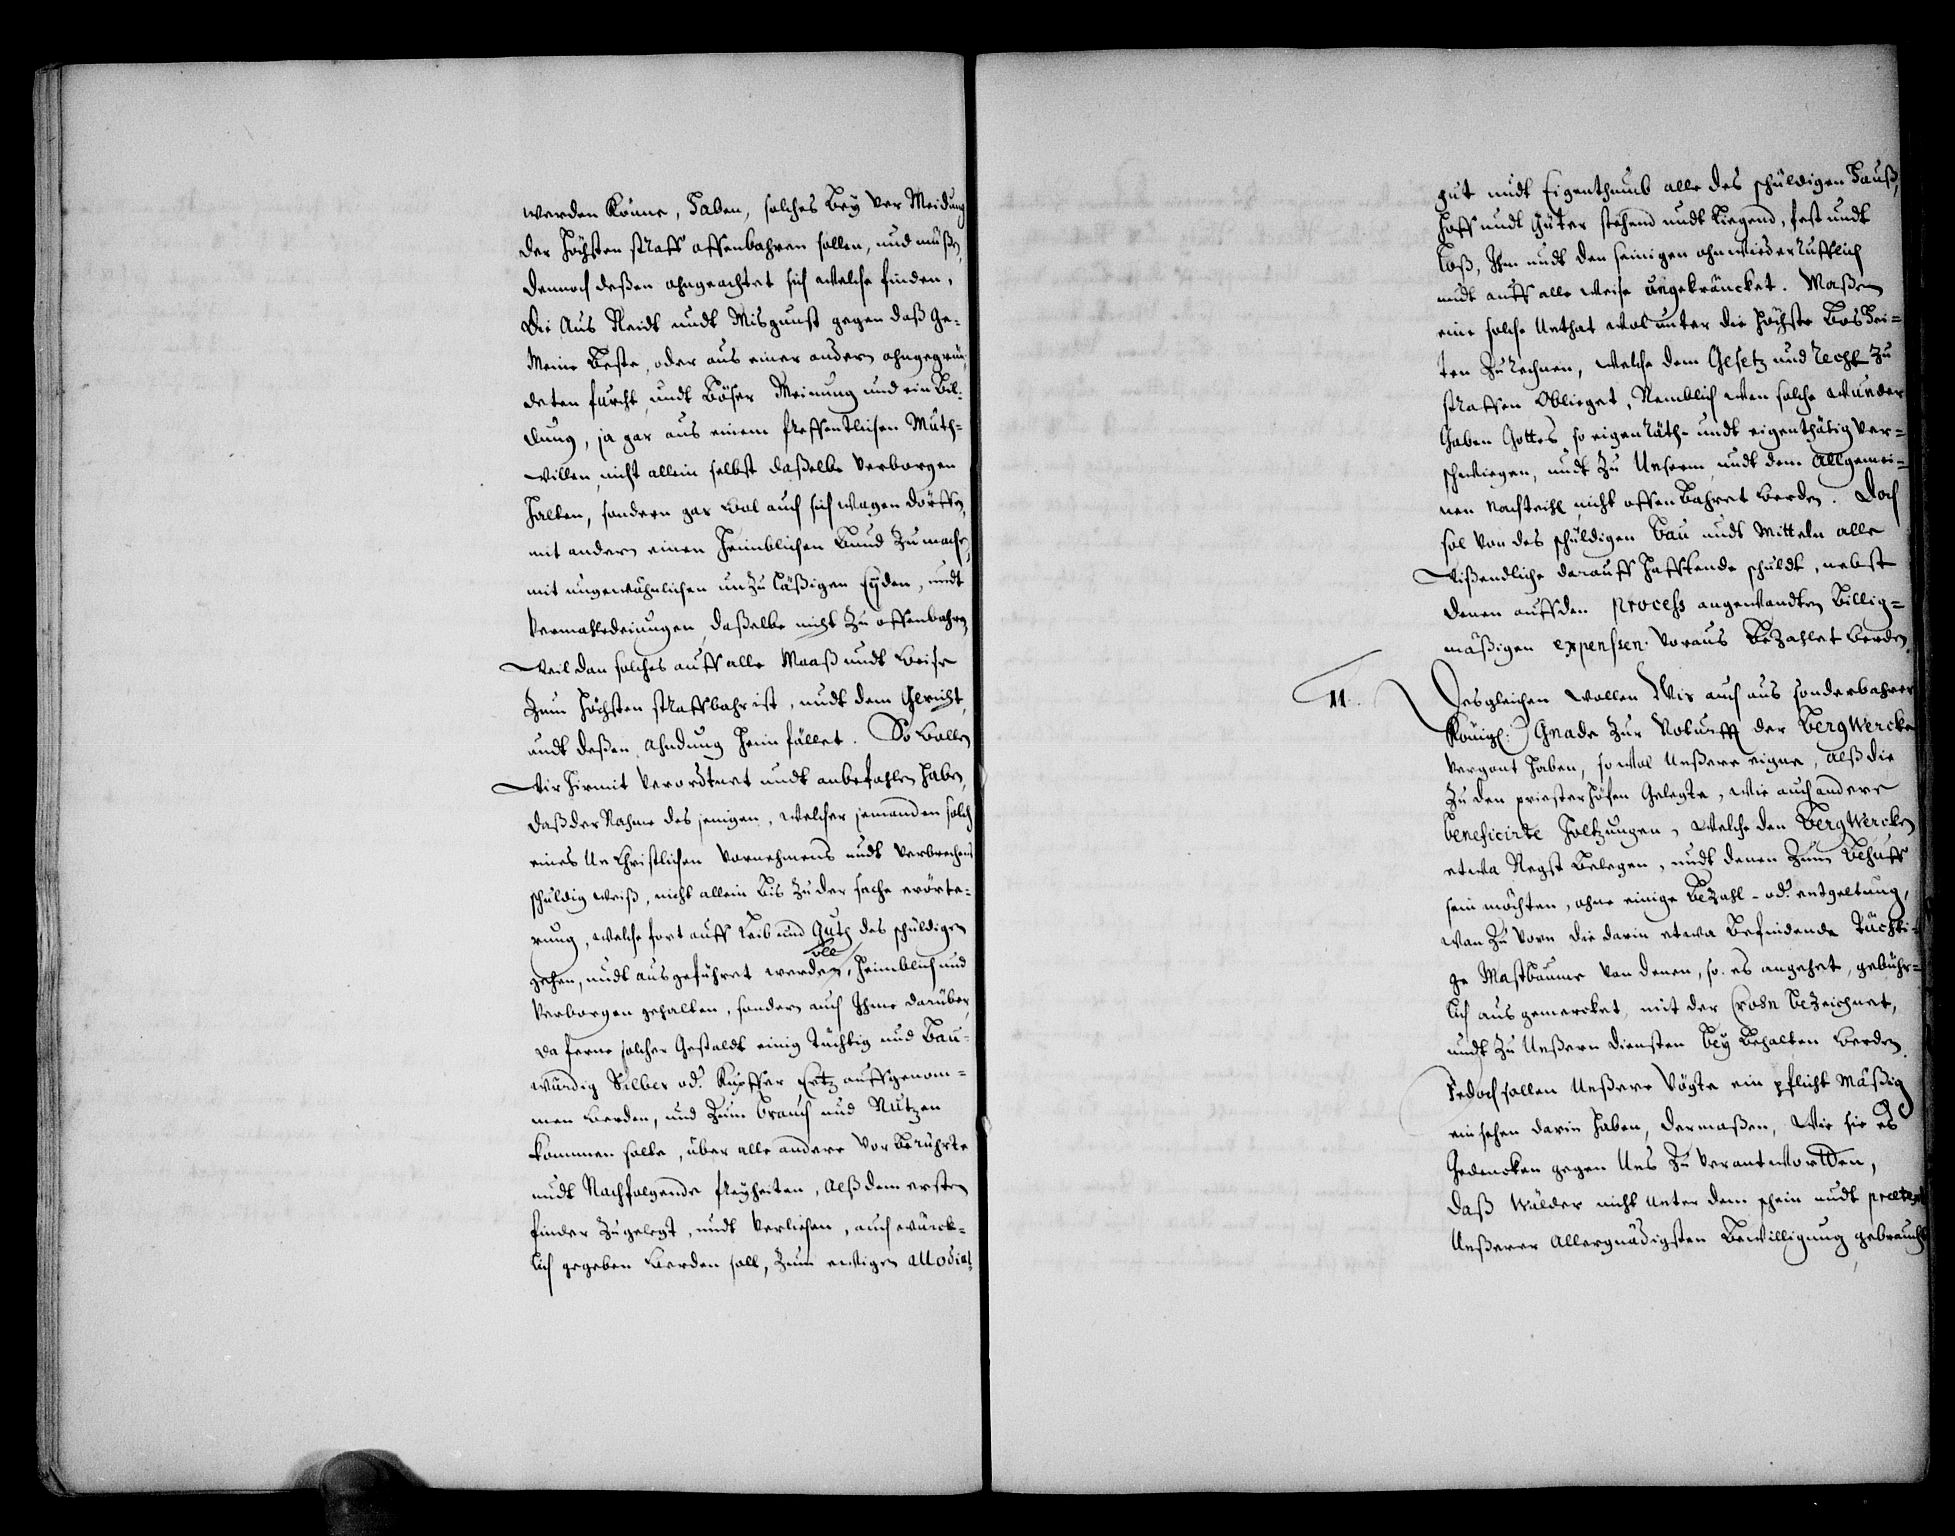 werden Könne, Haben, solches Bey Ver Meidung
der Höchsten straff offenbahren sollen, und müßen,
dennoch deßen ohngeachtet sich welche finden,
die Aus Neidt undt Misgunst gegen daß Ge-
Meine Beste, oder aus einer andern ohngegrün-
deten furcht, undt Böser Meinung und ein Bil-
dung, ja gar aus einem freffentlichen Muth-
willen, nicht allein selbst daßelbe Verborgen
Halten, sondern gar wol auch sich wagen dörffen,
mit andern einen Heimblichen Bund Zu machen,
mit ungewöhnlichen unzuläßigen Eyden, undt
Vermaledeiungen daßelbe nicht Zu offenbahren,
Weil dan solches auff alle Maaß undt Weise
Zum Höchsten straffbahr ist, undt dem Gericht,
undt deßen Ahndung Heim fället. So Wollen
Wir Hirmit Verordtnet undt anbefohlen Haben,
daß der Nahme des jenigen, welcher jemanden solch
eines Un Christlichen Vornehmens undt Verbrechens
schuldig weiß, nicht allein bis Zu der sache erörte-
rung, welche fort auff Leib und Guth des schuldigen
gehen, undt ausgeführet werden soll, Heimblich und
Verborgen gehalten, sondern auch Ihme darüber,
da ferne solcher Gestaldt einig Tüchtig und Bau-
würdig Silber od. Kupffer Ertz auffgenom-
men Werden, und Zum brauch und Nutzen
kommen solte, über alle andere Vor Berührte
undt Nachfolgende freyheiten, Alß dem ersten
finder Zugelegt, undt Verliehen, auch würck-
lich gegeben Werden soll, Zum ewigen allodial
gut undt Eigenthumb alle des schuldigen Hauß,
Hoff undt Güter stehend undt Liegend, fest undt
Loß, Ihm undt den seinigen ohnwiederrufflich
undt auff alle Weise ungekräncket. Maßen
eine solche Unthat wol unter die Höchste Bosthei-
ten Zu rechnen, welche dem Gesetz und recht Zu
straffen Oblieget, Nemblich wen solche Wunder
Gaben Gottes, so eigenräth- undt eigenthätig Ver-
schwiegen, undt Zu Unserm undt dem Allgemei-
nen Nachteihl nicht offen Bahret Werden. Doch
sol von des schuldigen Bau undt Mitteln alle
Wißendliche darauff Hafftende schuldt, nebst
denen auff den process angewandten Billig-
mäßigen expensen. Voraus BeZahlet Werden.
11. Desgleichen wollen Wir auch aus sonderbahrer
Königl: Gnade Zur Noturfft der BergWercke
Vergönt Haben, so wol Unßere eigne, Alß die
Zu den priesterhöfen Gelegte, wie auch andere
beneficirte Holtzungen, welche den BergWercken
etwa Negst Belegen, undt denen Zum Behuff
sein möchten, ohne einige BeZahl- od. entgeltung,
wan Zu vorn die darin etwa Befindende Tüchti-
ge Mastbäume von denen, so es angehet, gebühr-
lich ausgemercket, mit der Crohn BeZeichnet,
undt Zu Unßern diensten bey Behalten Werden.
Jedoch sollen Unßere Vögte ein pflicht mäßig
einsehen darin Haben, dermaßen, Wie sie es
Gedencken gegen Uns Zu Verantworten,
daß Wälder nicht unter dem schein undt prætext
Unßerer Allergnädigsten Bewilligung gebraucht